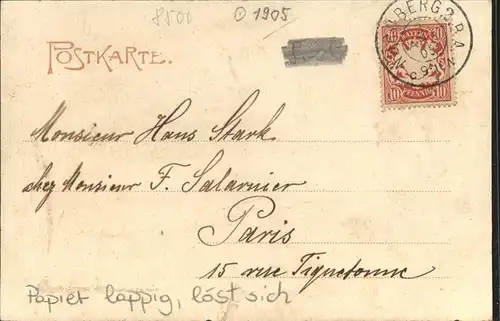 8500 ⊙ 1905
POSTKARTE.
BERG 2. B.A.
BAYERN
10 10
PFENNIG
10 10
Monsieur Hans Stark
chez Monsieur F. Salarnier
Paris
15 rue Tiquetonne
Papier lappig, löst sich